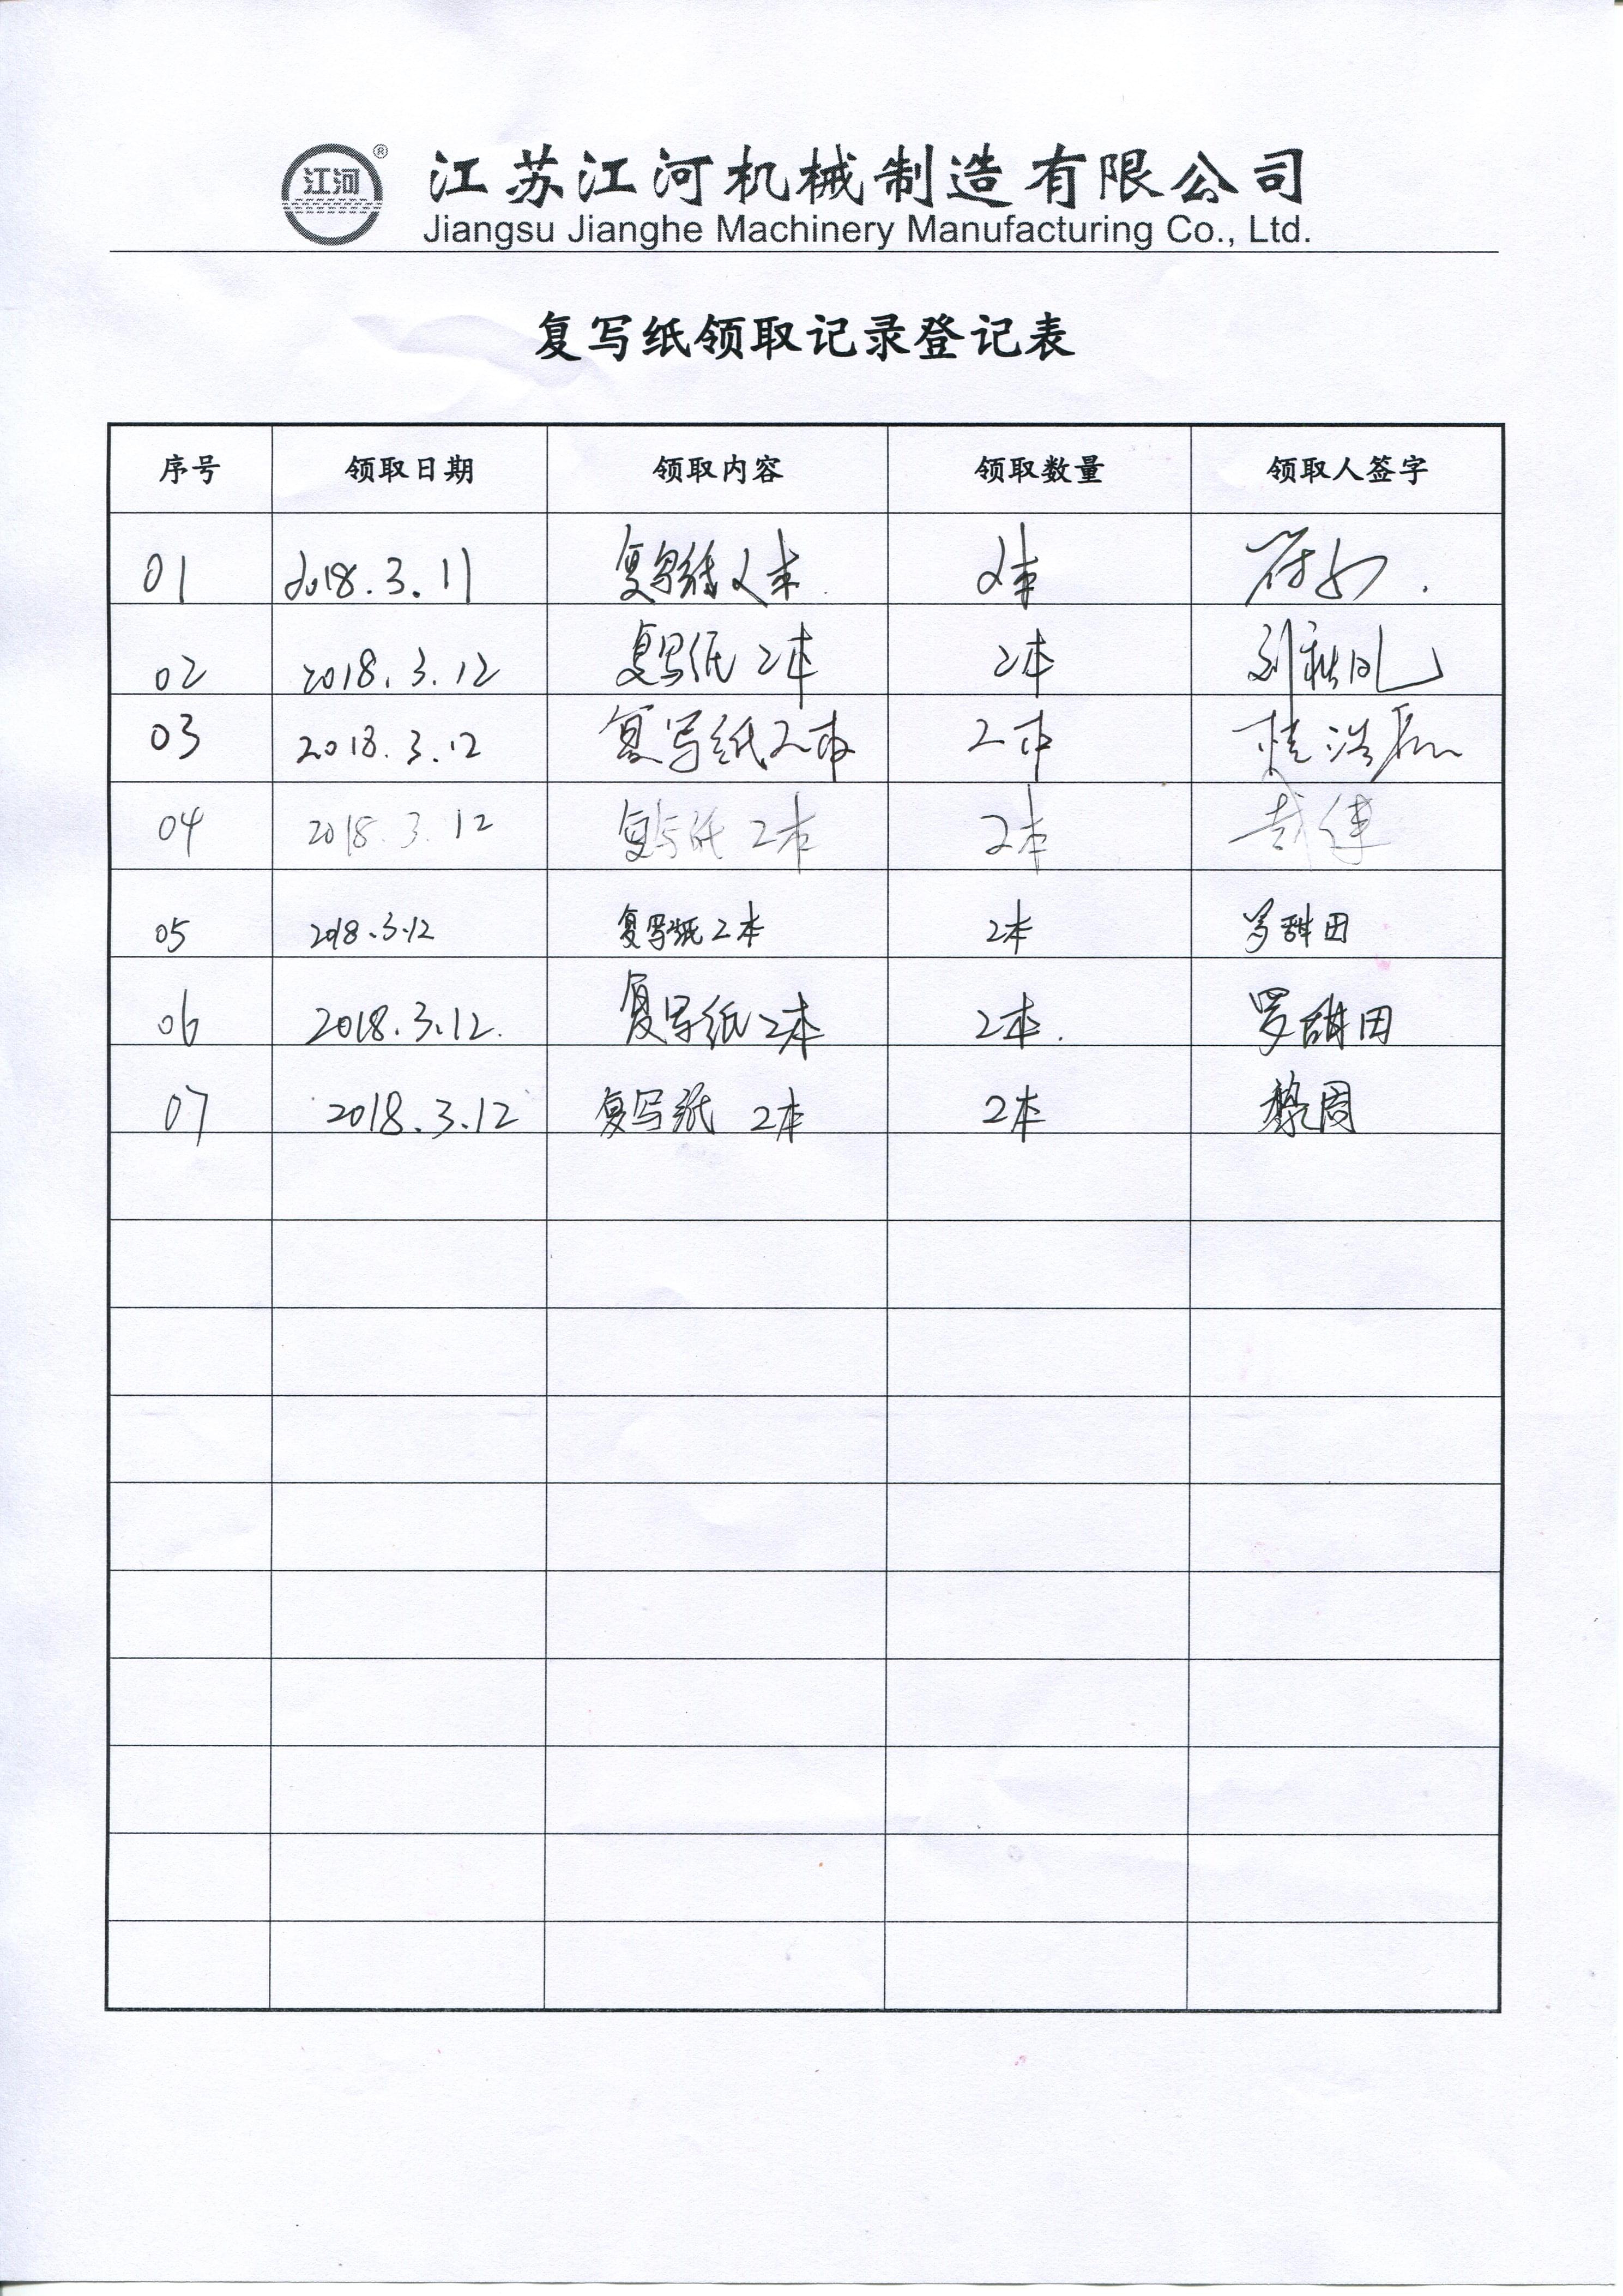 江河 ®
江苏江河机械制造有限公司
Jiangsu Jianghe Machinery Manufacturing Co., Ltd.
复写纸领取记录登记表
序号 领取日期 领取内容 领取数量 领取人签字
01 2018.3.11 复写纸2本 2本
02 2018.3.12 复写纸2本 2本
03 2018.3.12 复写纸2本 2本
04 2018.3.12 复写纸2本 2本
05 2018.3.12 复写纸2本 2本 罗甜田
06 2018.3.12. 复写纸2本 2本. 罗甜田
07 2018.3.12 复写纸 2本 2本